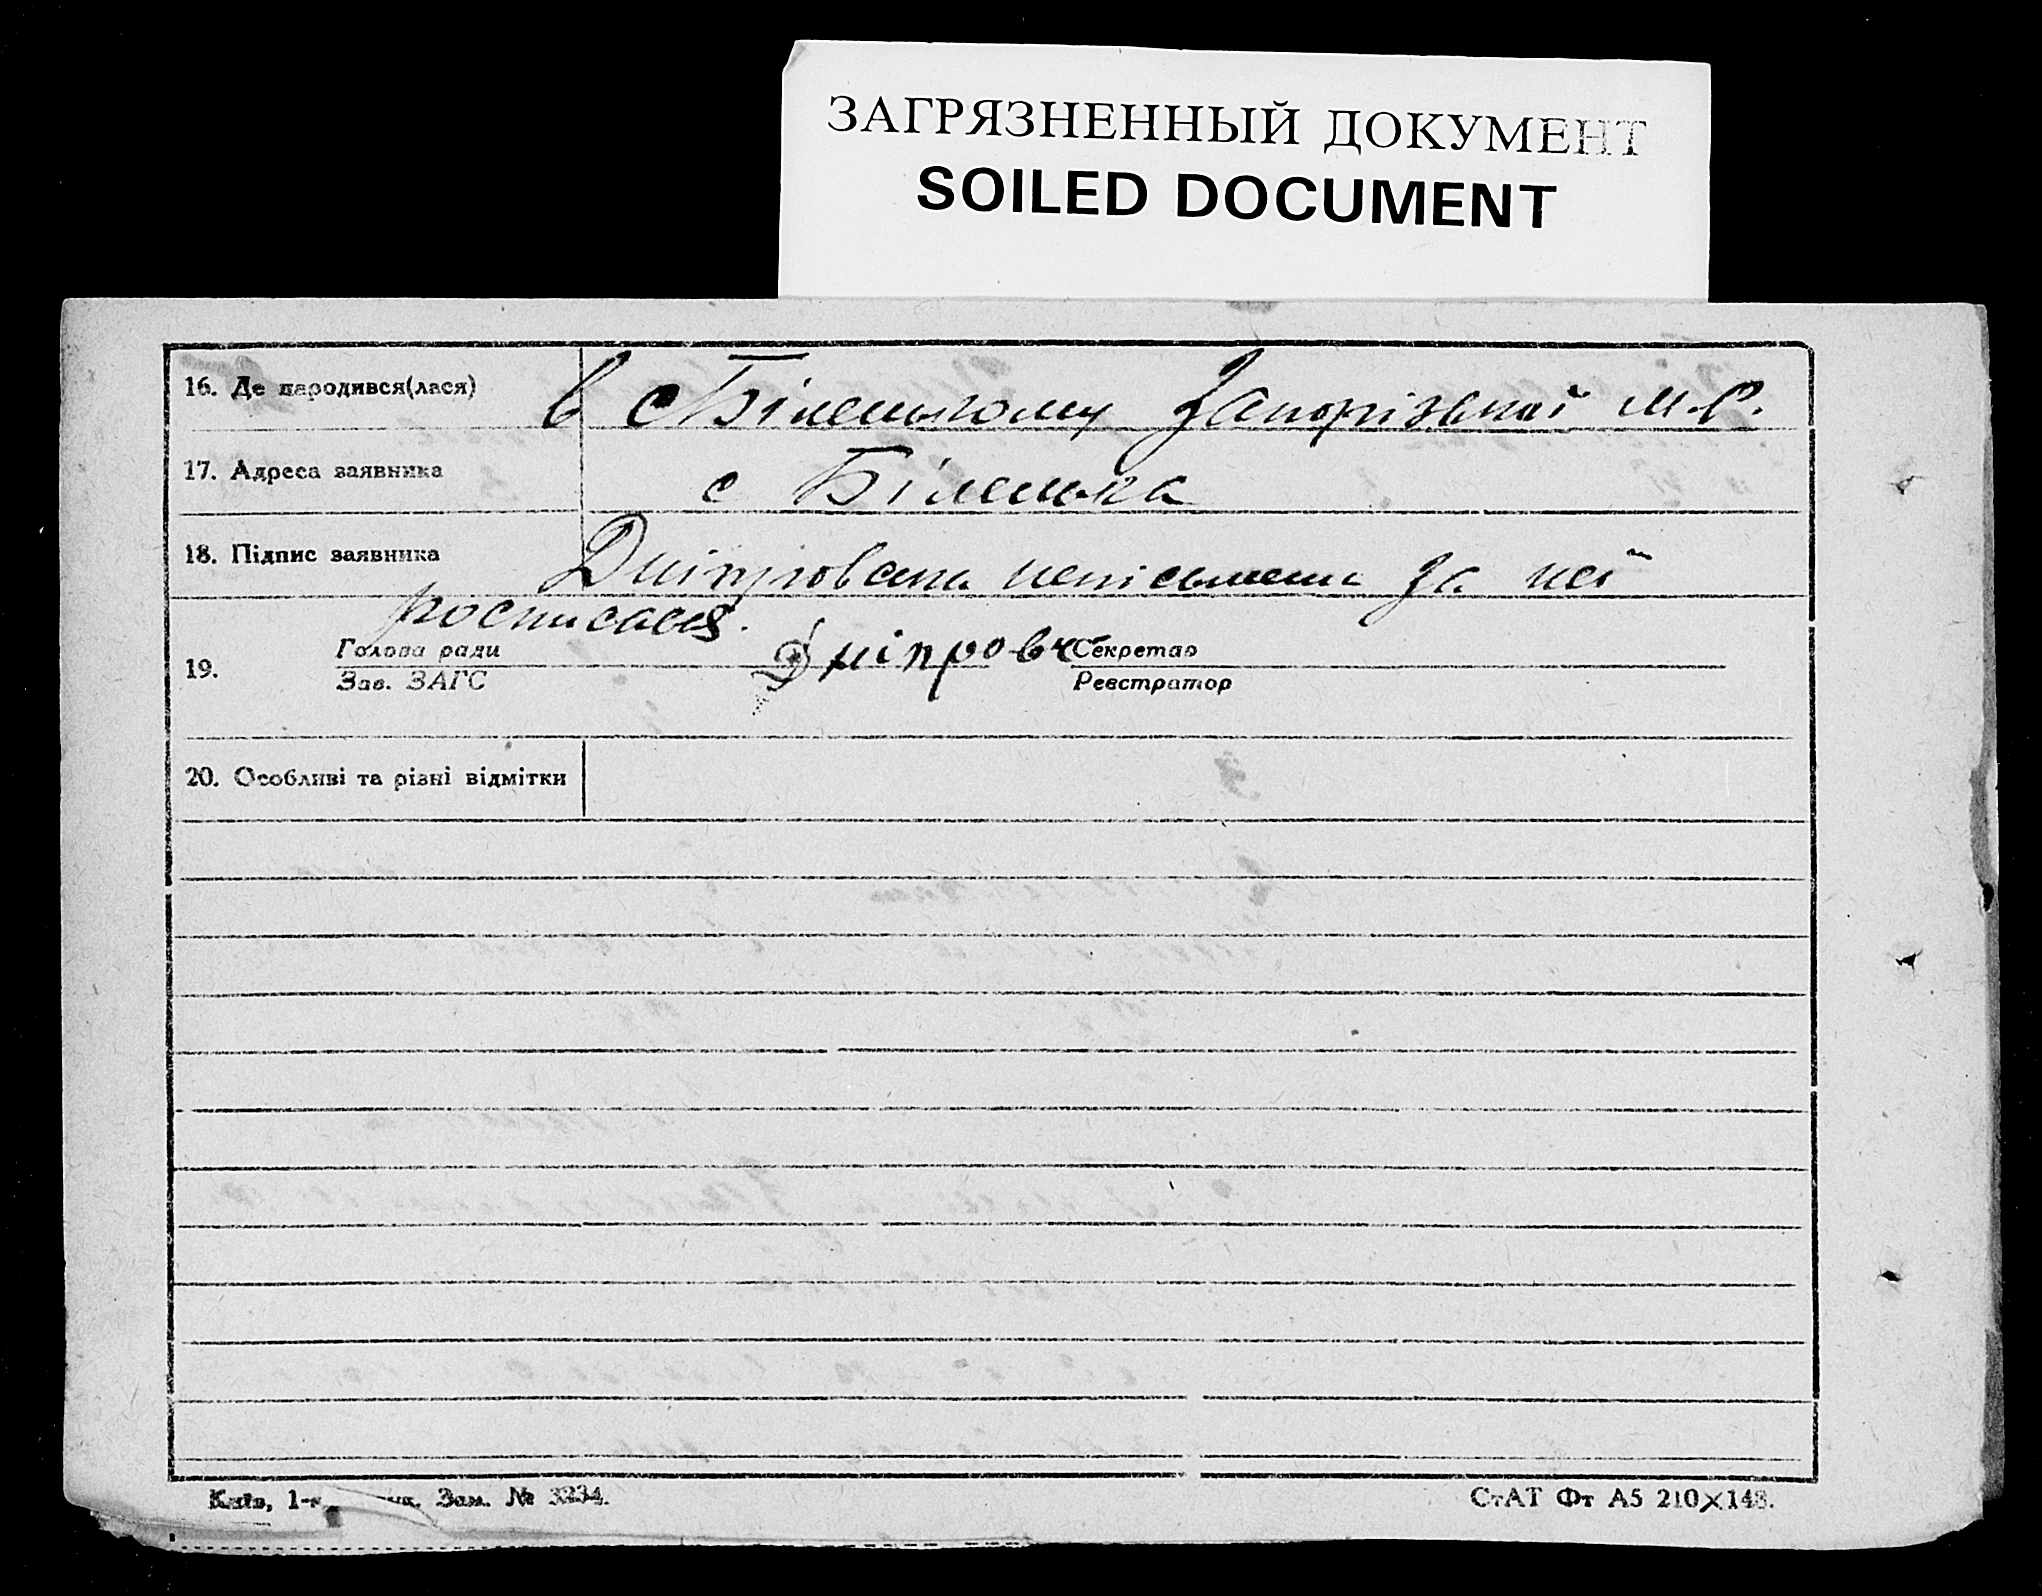 ЗАГРЯЗНЕННЫЙ ДОКУМЕНТ
SOILED DOCUMENT
16. Де народився(лася) в с Біленькому Запорізької м.р.
17. Адреса заявника с Біленька
18. Підпис заявника Дніпрована неписьмена за неї
росписався.
19. Голова ради Дніпров Секретар
Зав. ЗАГС Реєстратор
20. Особливі та різні відмітки
Київ, 1- Зам. № 3234.
СтАТ Фт А5 210×148.